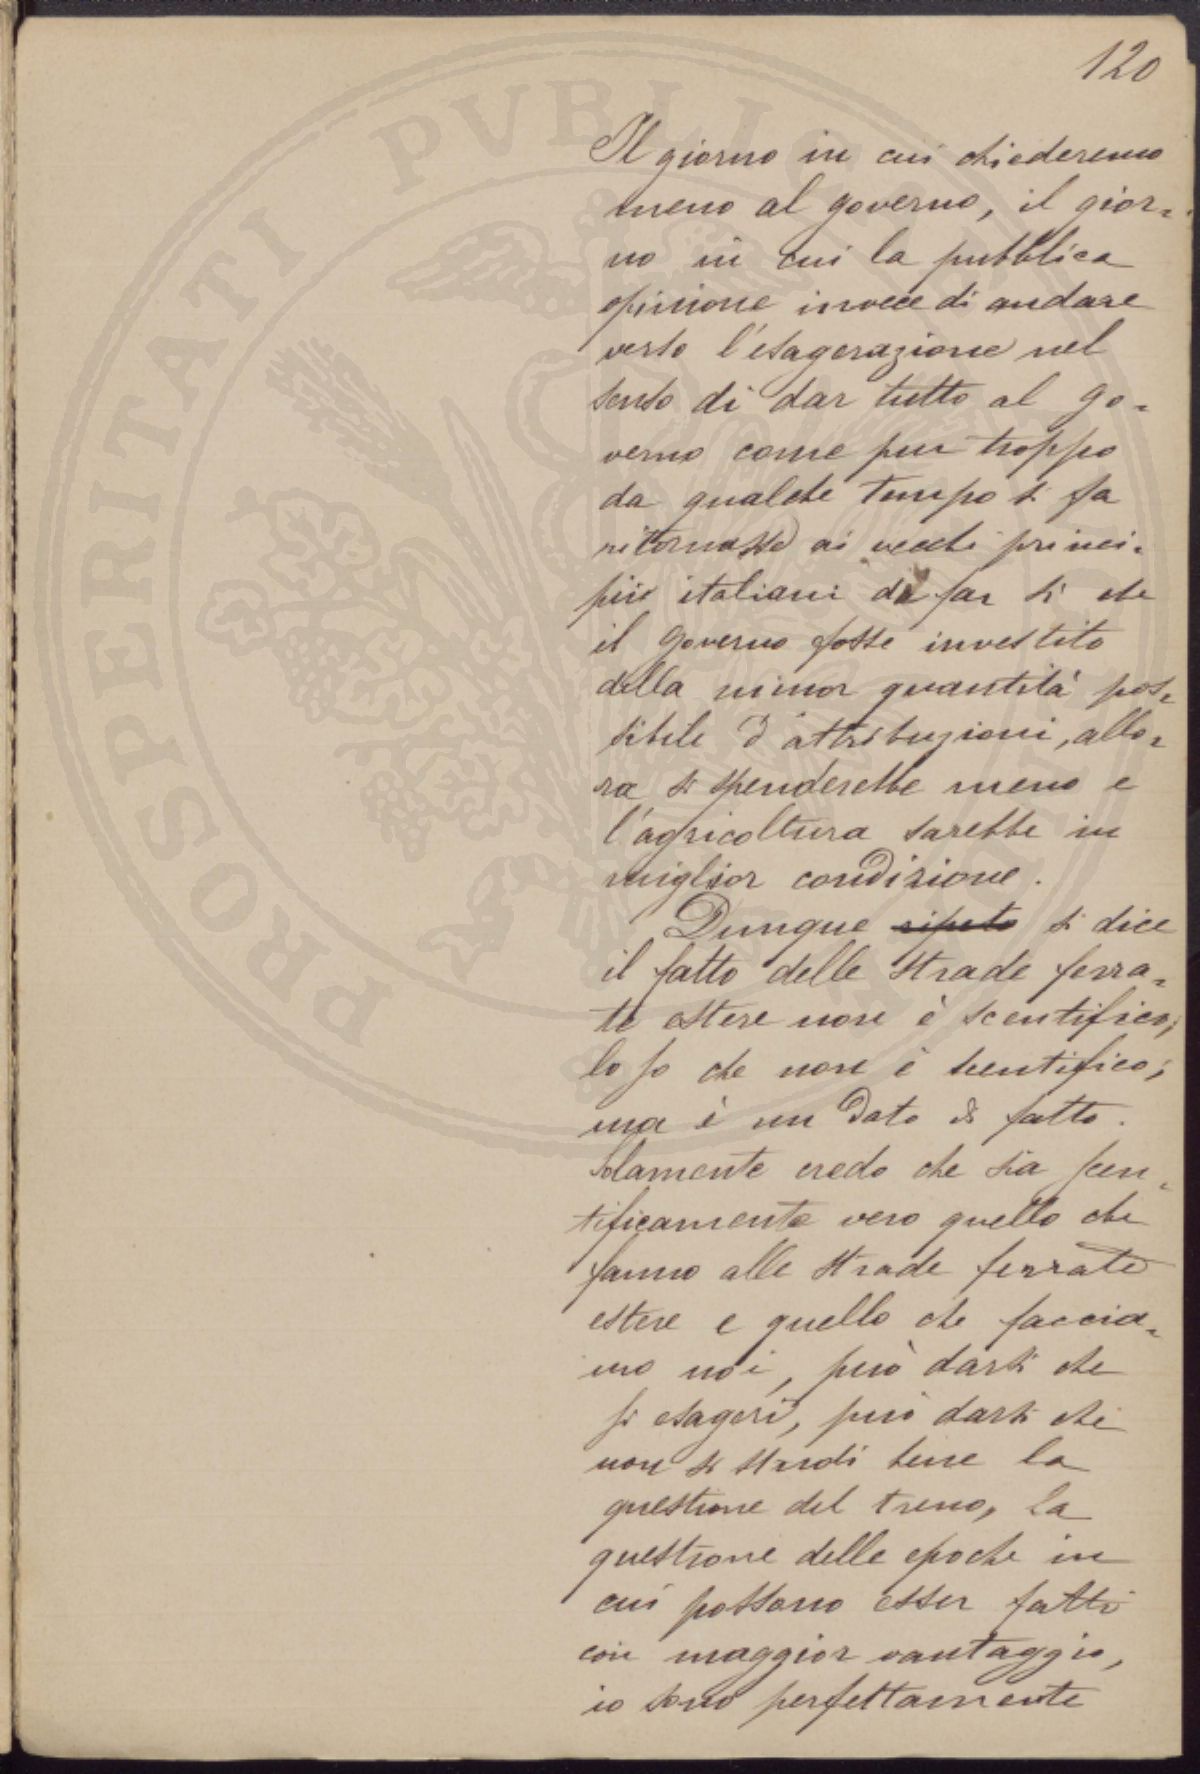 120
Il giorno in cui chiederemo
meno al governo, il gior=
no in cui la pubblica
opinione invece di andare
verso l'esagerazione nel
senso di dar tutto al go=
verno come pur troppo
da qualche tempo si fa
ritornasse ai vecchi princi=
pii italiani di far sì che
il Governo fosse investito
della minor quantità pos=
sibile d'attribuzioni, allo=
ra si spenderebbe meno e
l'agricoltura sarebbe in
miglior condizione.
Dunque ripeto si dice
il fatto delle strade ferra=
te estere non è scentifico;
lo so che non è scentifico;
ma è un dato di fatto.
Solamente credo che sia scen=
tificamente vero quello che
fanno alle strade ferrate
estere e quello che faccia=
mo noi, può darsi che
si esageri, può darsi che
non si studi bene la
questione del treno, la
questione delle epoche in
cui possono esser fatti
con maggior vantaggio,
io sono perfettamente
PROSPERITATI PVBLICAE